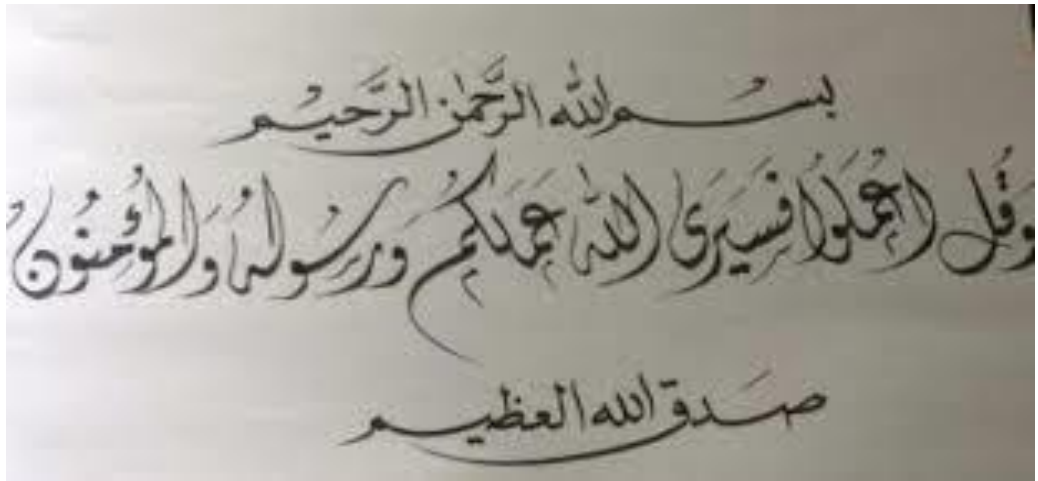 بسم الله الرحمن الرحيم
وَقُل اعْمَلُوا فَسَيَرَى الله عَمَلَكُمْ وَرَسُولُهُ وَالْمُؤْمِنُون
صدق الله العظيم